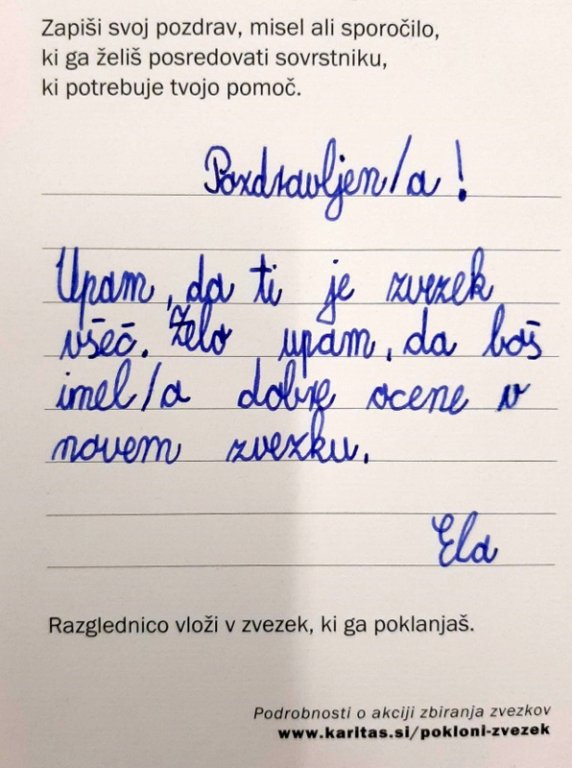 Zapiši svoj pozdrav, misel ali sporočilo,
ki ga želiš posredovati sovrstniku,
ki potrebuje tvojo pomoč.
Pozdravljen/a!
Upam, da ti je zvezek
všeč. Zelo upam, da boš
imel/a dobre ocene v
novem zvezku.
Ela
Razglednico vloži v zvezek, ki ga poklanjaš.
Podrobnosti o akciji zbiranja zvezkov
www.karitas.si/pokloni-zvezek